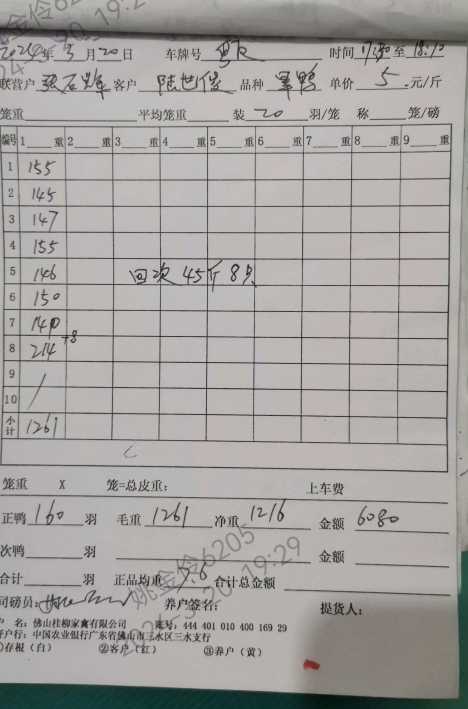 2024年3月20日 车牌号 时间17:30至18:10
联营户 客户 陆世保 品种 单价 5 元/斤
笼重 平均笼重 装 20 羽/笼 称 笼/磅
编号 1 重 2 重 3 重 4 重 5 重 6 重 7 重 8 重 9 重
1 155
2 145
3 147
4 155
5 146 回次 45斤 8只
6 150
7 140
8 214 +8
9 /
10
小计 1261
笼重 X 笼=总皮重: 上车费
正鸭 160 羽 毛重 1261 净重 1216 金额 6080
次鸭 羽 金额
合计 羽 正品均重 7.6 合计总金额
司磅员: 养户签名: 提货人:
户 名: 佛山桂柳家禽有限公司 账号: 444 401 010 400 169 29
开户行: 中国农业银行广东省佛山市三水区三水支行
①存根(白) ②客户(红) ③养户(黄)
姚金伶6205
19:29